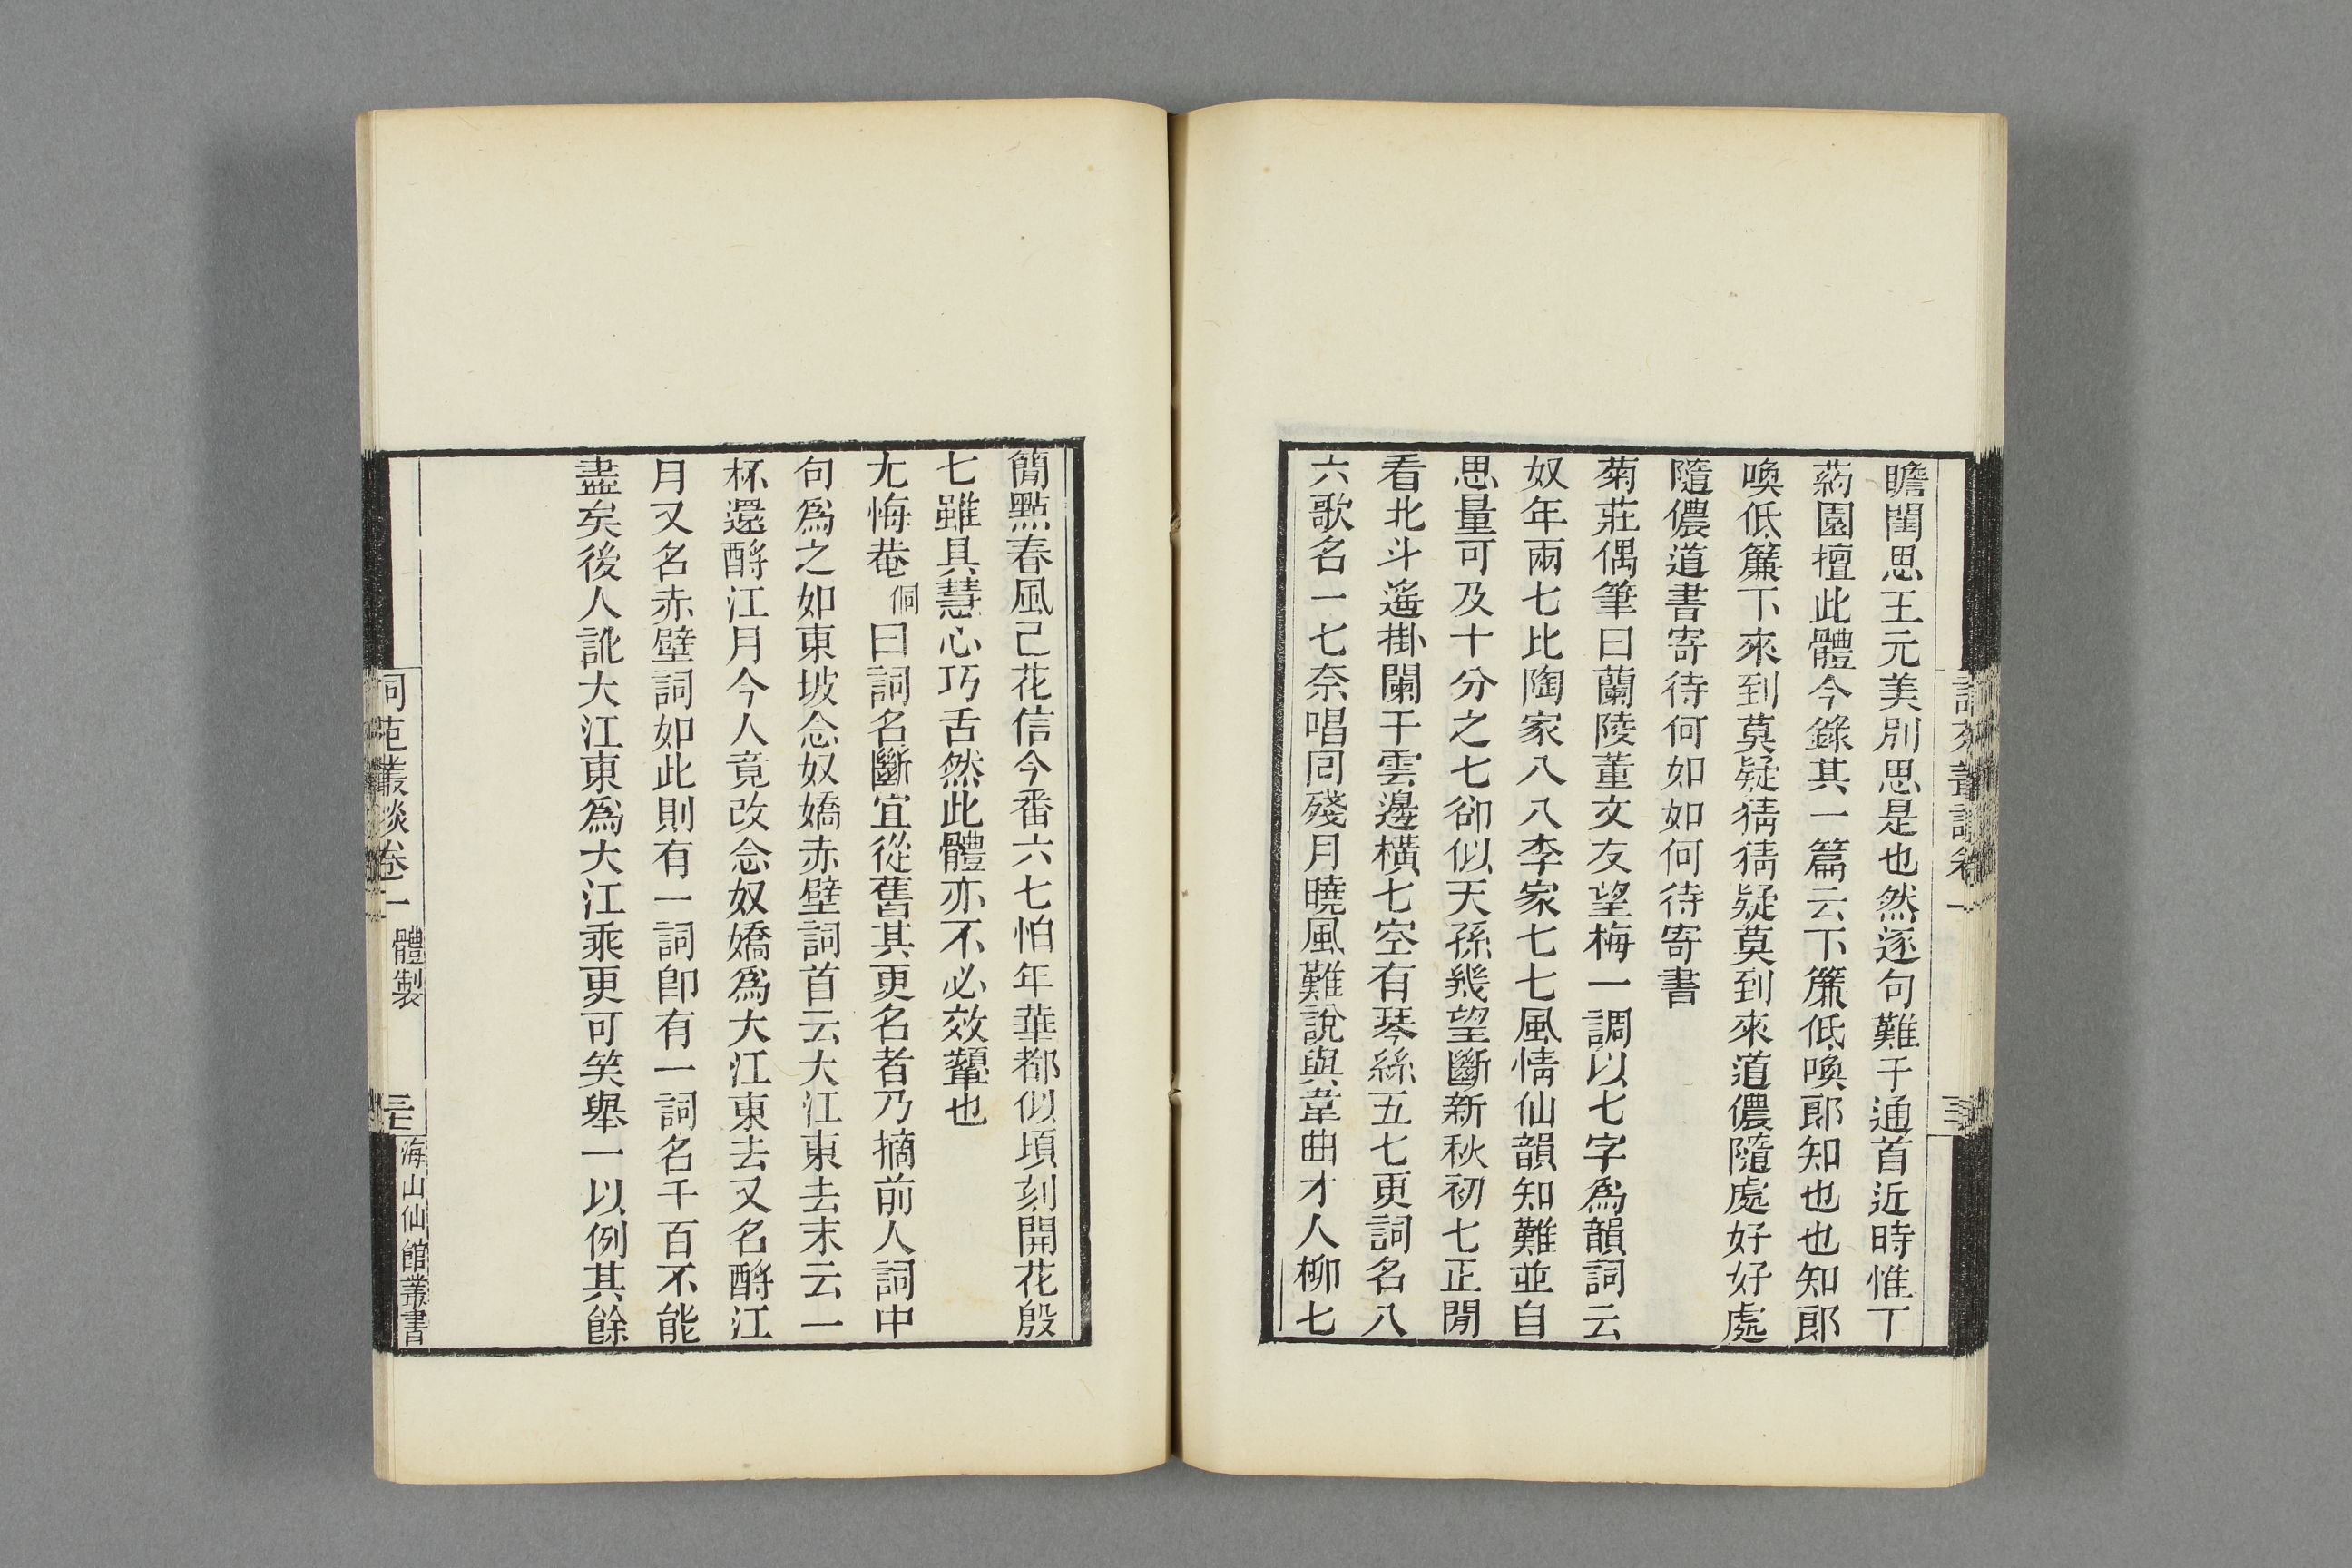 瞻閨思王元美別思是也然逐句難于通首近時惟丁
葯園擅此體今錄其一篇云下簾低喚郎知也也知郎
喚低簾下來到莫疑猜猜疑莫到來道儂隨處好好處
隨儂道書寄待何如如何待寄書
菊莊偶筆曰蘭陵董文友望梅一調以七字爲韻詞云
奴年兩七比陶家八八李家七七風情仙韻知難並自
思量可及十分之七卻似天孫幾望斷新秋初七正閒
看北斗遙掛闌干雲邊橫七空有琴絲五七更詞名八
六歌名一七奈唱同殘月曉風難說與韋曲才人柳七
簡點春風己花信今番六七怕年華都似頃刻開花殷
七雖具慧心巧舌然此體亦不必效顰也
尤悔菴侗曰詞名斷宜從舊其更名者乃摘前人詞中
句爲之如東坡念奴嬌赤壁詞首云大江東去末云一
杯還酹江月今人竟改念奴嬌爲大江東去又名酹江
月又名赤壁詞如此則有一詞卽有一詞名千百不能
盡矣後人訛大江東爲大江乘更可笑舉一以例其餘
詞苑叢談卷一 體製
海山仙館叢書